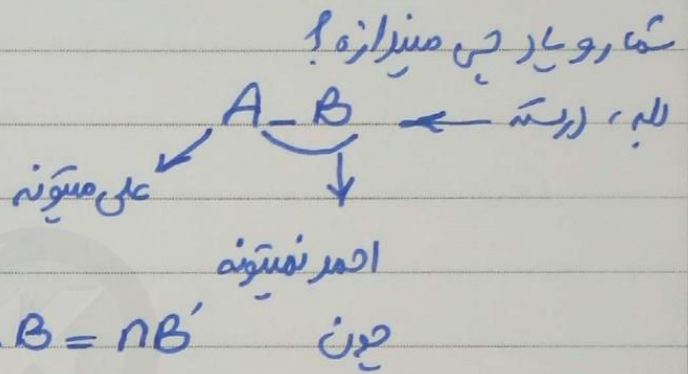 شما رو یاد چی میندازه؟
بله، درسته ← A - B
علی میتونه
احمد نمیتونه
چون
-B = ∩B′